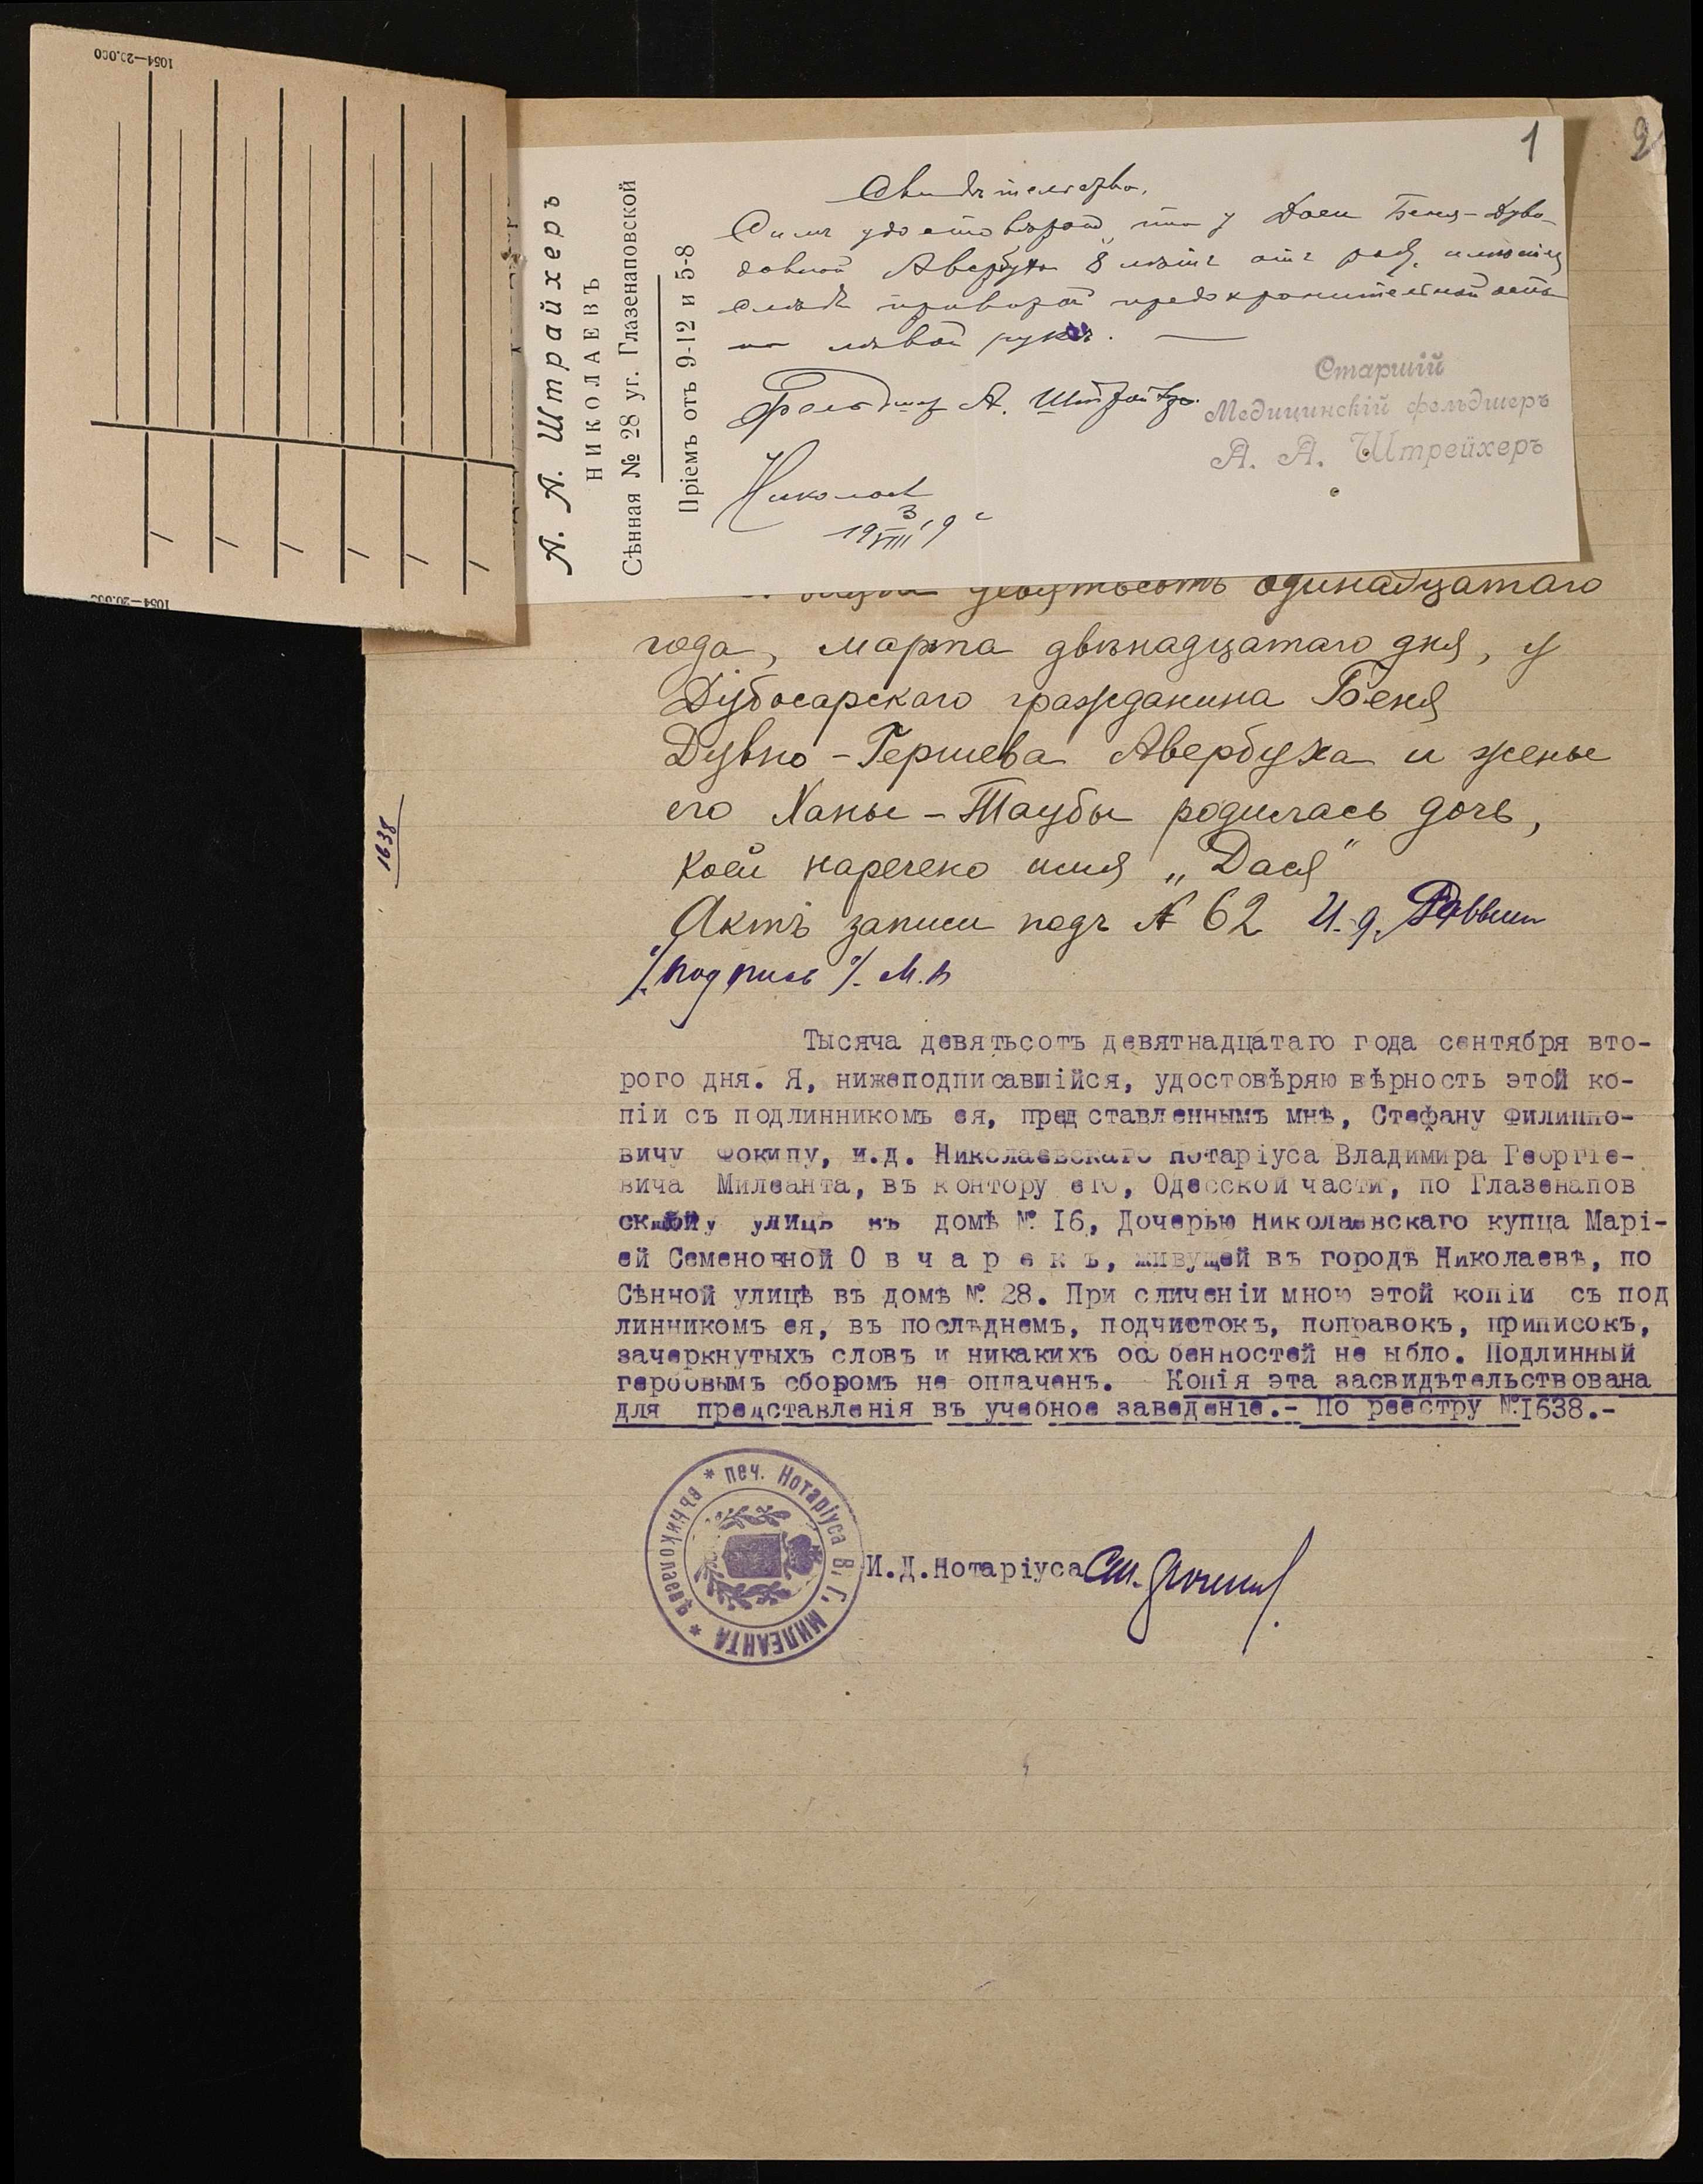 1054—20.000
1054—20.000
А. А. Штрайхеръ
НИКОЛАЕВЪ
Сѣнная № 28 уг. Глазенаповской
Пріемъ отъ 9-12 и 5-8
1
2
Свидѣтельство.
Симъ удостовѣряю, что у Даси Беня-Дуво-
довной Авербухъ 8 лѣтъ отъ роду, имѣется
слѣдъ привитой предохранительной оспы
на лѣвой рукѣ.
Фельдшер А. Штрайхер.
Николаев
19 3/VIII 19 г
Старшій
Медицинскій фельдшеръ
А. А. Штрейхеръ
девятьсотъ одинадцатаго
года, марта двѣнадцатаго дня, у
Дубосарскаго гражданина Беня
Дувно-Гершева Авербуха и жены
его Ханы-Таубы родилась дочь,
коей наречено имя „Дася"
Актъ записи подъ № 62 И.д. Раввин
/подпись/. М.П
1638
Тысяча девятьсотъ девятнадцатаго года сентября вто-
рого дня. Я, нижеподписавшійся, удостовѣряю вѣрность этой ко-
піи съ подлинникомъ ея, представленнымъ мнѣ, Стефану Филиппо-
вичу Фокину, и.д. Николаевскаго нотаріуса Владимира Георгіе-
вича Милеанта, въ контору его, Одесской части, по Глазенапов
ской улицѣ въ домѣ № I6, Дочерью Николаевскаго купца Марі-
ей Семеновной О в ч а р е к ъ, живущей въ городѣ Николаевѣ, по
Сѣнной улицѣ въ домѣ № 28. При сличеніи мною этой копіи съ под
линникомъ ея, въ послѣднемъ, подчистокъ, поправокъ, приписокъ,
зачеркнутыхъ словъ и никакихъ особенностей не ыбло. Подлинный
гербовымъ сборомъ не оплаченъ. Копія эта засвидѣтельствована
для представленія въ учебное заведеніе.- По реестру №I638.-
* печ. Нотаріуса В. Г. МИЛЕАНТА * въ Николаевѣ
И.Д.Нотаріуса Ст. Фокин